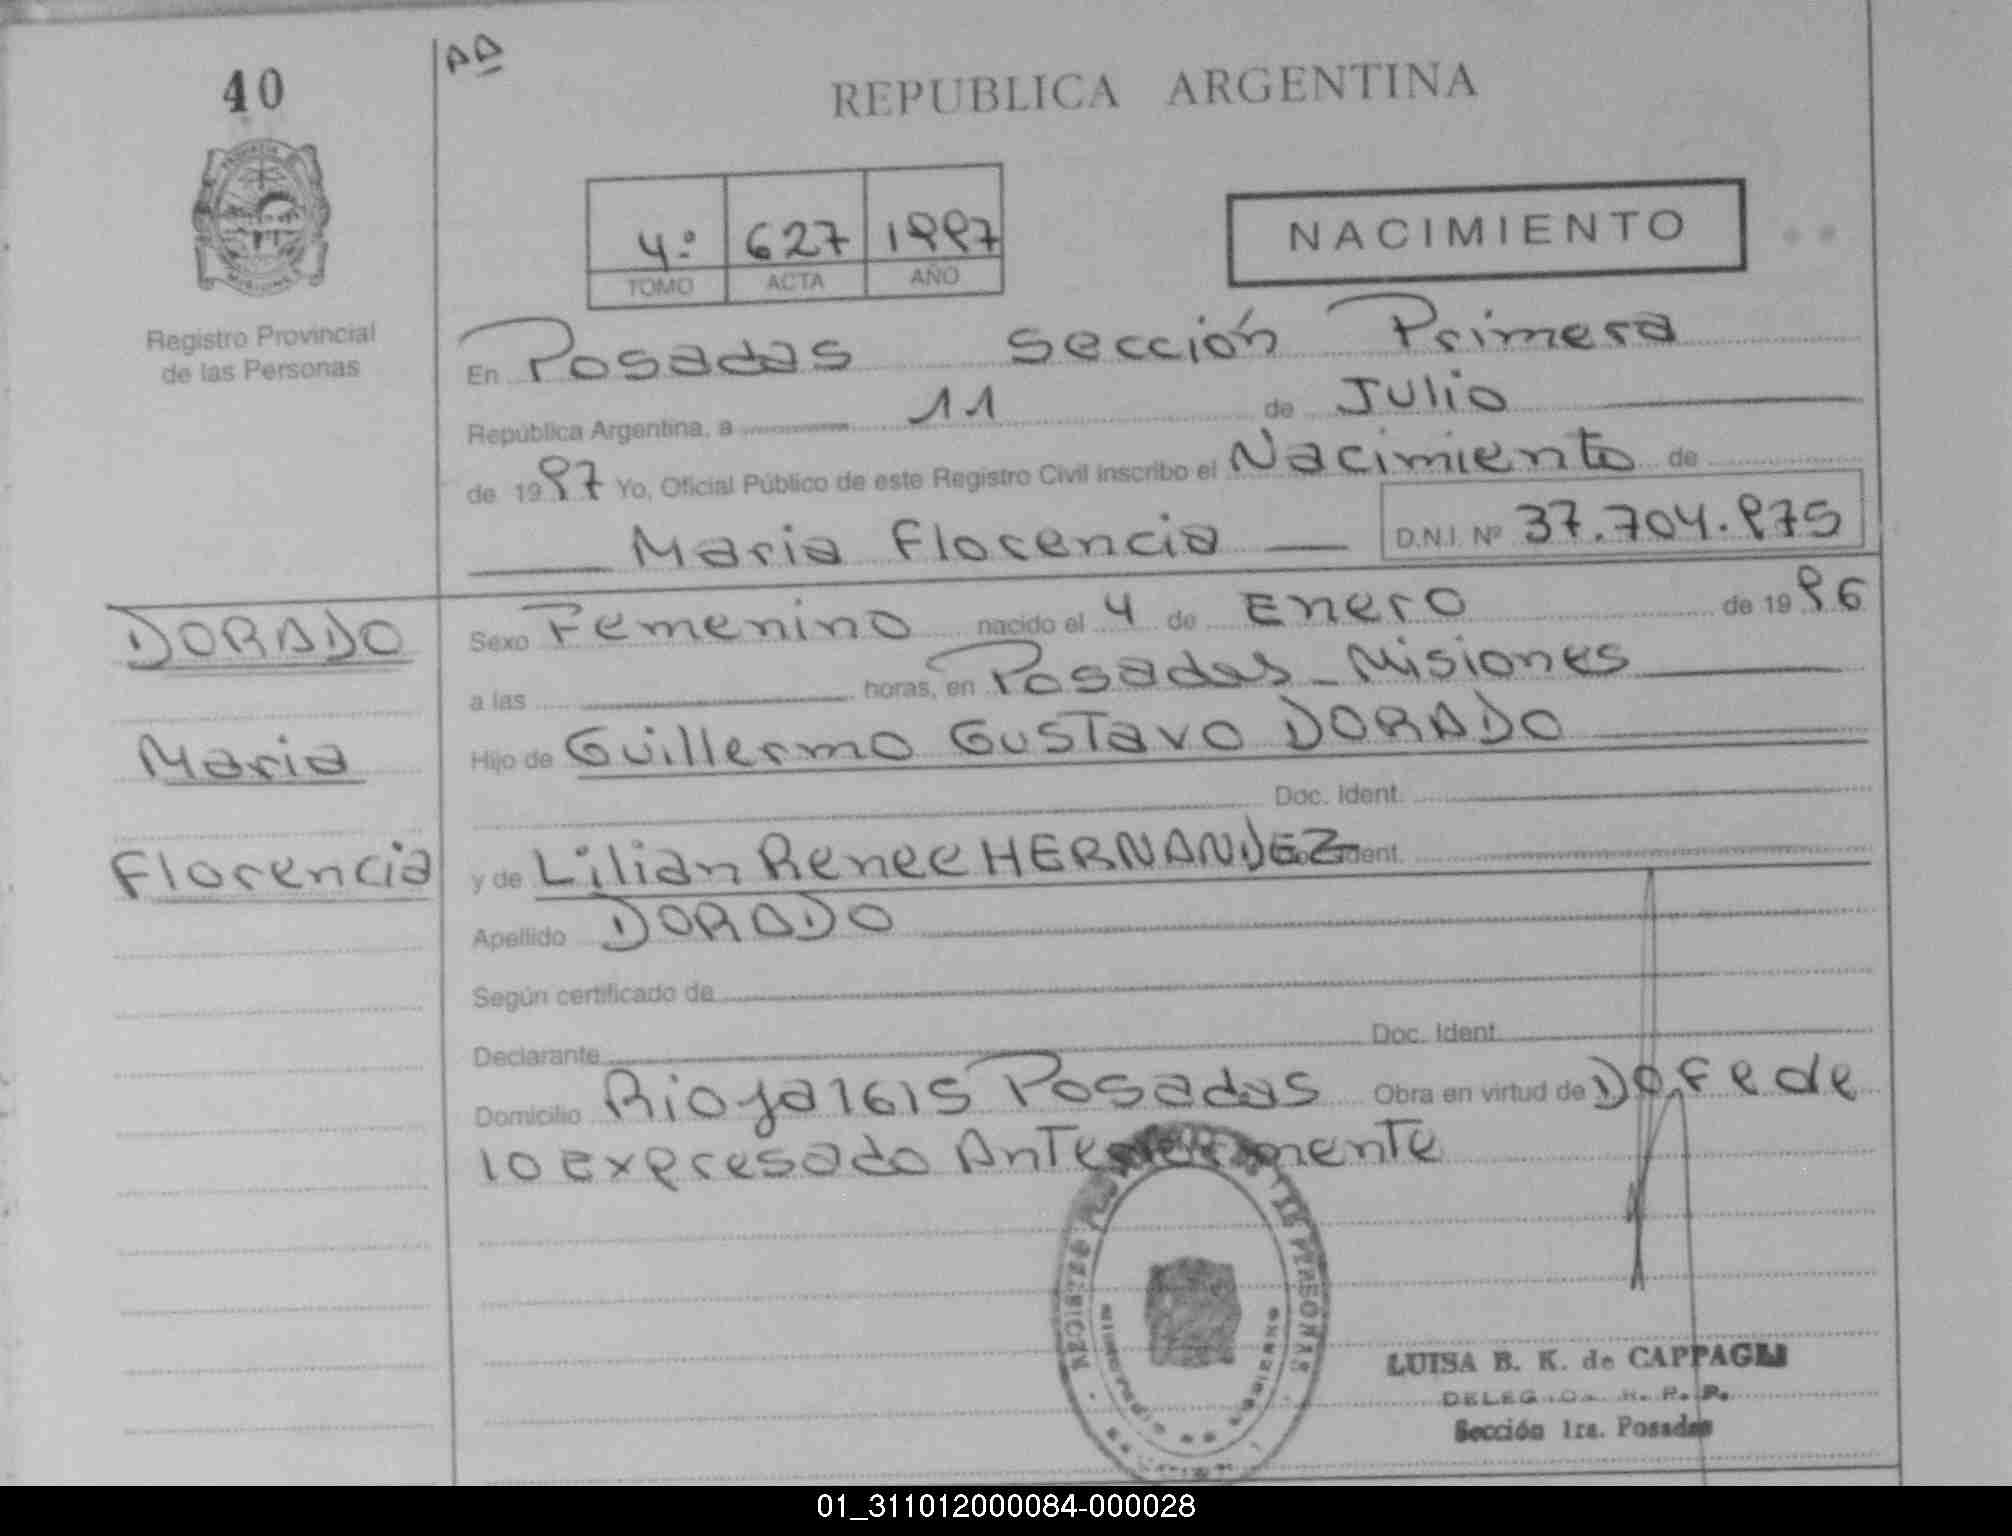 40
AA
REPUBLICA ARGENTINA
4º 627 1997
TOMO ACTA AÑO
NACIMIENTO
Registro Provincial
de las Personas
En Posadas Sección Primera
República Argentina, a 11 de Julio
de 1997 Yo, Oficial Público de este Registro Civil inscribo el Nacimiento de
Maria Florencia D.N.I. Nº 37.704.975
DORADO
Maria
Florencia
Sexo Femenino nacido el 4 de Enero de 1996
a las horas, en Posadas - Misiones
Hijo de Guillermo Gustavo DORADO
Doc. Ident.
y de Lilian Renee HERNANDEZ Doc. Ident.
Apellido DORADO
Según certificado de
Declarante Doc. Ident.
Domicilio Rioja 1615 Posadas Obra en virtud de Dofede
lo expresado Anteriormente
LUISA B. K. de CAPPAGLI
R. P. P.
Sección 1ra. Posadas
01_311012000084-000028